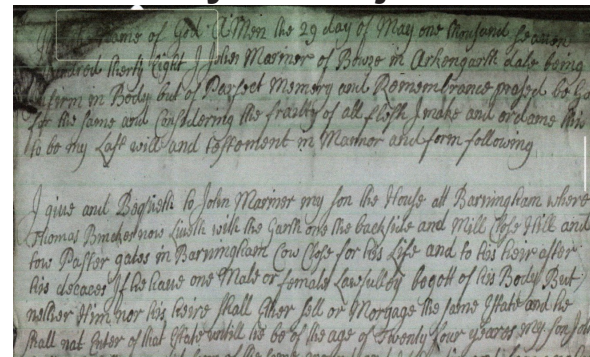 In the Name of God AMen the 29 day of May one thousand seaven
hundred therty Eight I John Marriner of Booze in Arkengarth Dale being
infirm in Body but of Parfect Memory and Remembrance prased be God
for the same and Considering the frailty of all flesh I make and ordame this
to be my Last will and testoment in Manner and form following
I give and Beqtieth to John Marriner my son the House att Barningham where
Thomas now Liveth with the Garth one the backside and Mill Close Hill and
tow Paster gates in Barningham Cow Close for his Life and to his heir after
his deceaes If he have one Male or female Lawfulley begott of his Body But
nether Him nor his heire shall Ether sell or Morgage the same Estate and he
shall not Enter of that Estate untill he be of the age of Twenty four yeares my son John